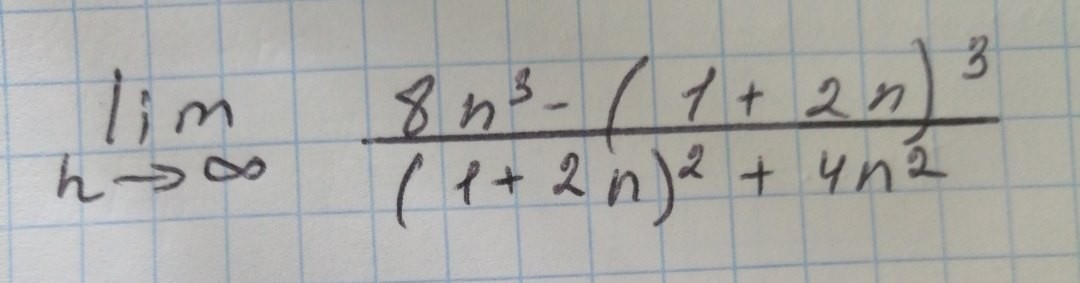 lim 8n³ - (1 + 2n)³
n→∞ (1 + 2n)² + 4n²